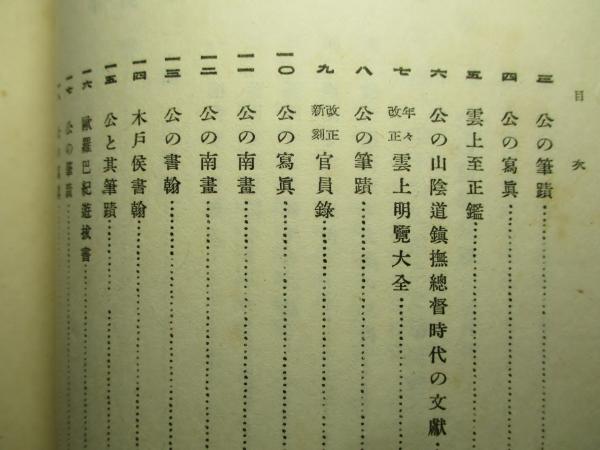 目次
三 公の筆蹟
四 公の寫眞
五 雲上至正鑑
六 公の山陰道鎮撫總督時代の文獻
七 年々改正 雲上明覽大全
八 公の筆蹟
九 改正新刻 官員錄
一〇 公の寫眞
一一 公の南畫
一二 公の南畫
一三 公の書翰
一四 木戸侯書翰
一五 公と其筆蹟
一六 歐羅巴紀遊拔書
一七 公の筆蹟